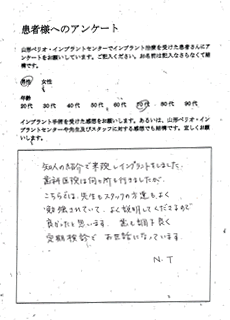 患者様へのアンケート
山形ペリオ・インプラントセンターでインプラント治療を受けた患者さんにア
ンケートをお願いしています。ご記入ください。お名前は記入なさらなくて結
構です。
男性 女性
年齢
20代 30代 40代 50代 60代 70代 80代 90代
インプラント手術を受けた感想をお願いします。あるいは、山形ペリオ・イン
プラントセンターや先生及びスタッフに対する感想でも結構です。宜しくお願
いします。
知人の紹介で来院しインプラントをしました。
歯科医院は何ヶ所も行きましたが、
こちらでは、先生もスタッフの方達もよく
勉強されていて、よく説明してくださるので
良かったと思います。歯も調子良く
定期検診で お世話になっています。
N.T